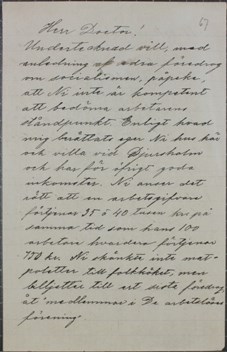 67
Herr Doctor!
Undertecknad vill, med
anledning af edra föredrag
om socialismen, påpeka,
att Ni inte är kompetent
att bedöma arbetarens
ståndpunkt. Enligt hvad
mig berättats eger Ni hus här
och villa vid Djursholm
och har för öfrigt goda
inkomster. Ni anser det
rätt att en arbetsgifvare
förtjenar 35 à 40 tusen kr på
samma tid som hans 100
arbetare hvardera förtjenar
750 kr. Ni skänkte inte mat-
poletter till folkköket, men
billjetter till ert sista föredrag
åt medlemmar i De arbetslöses
förening.